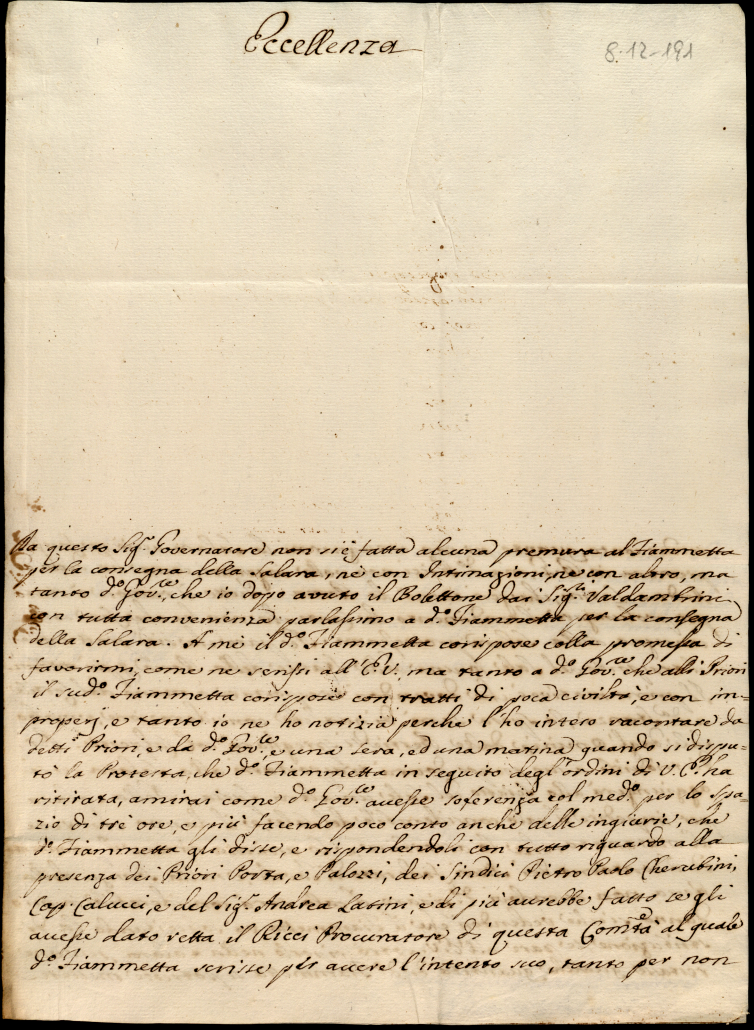 Eccellenza
8.12-191
Da questo Sig.r Governatore non si è fatta alcuna premura al Fiammetta
per la consegna della Salara, ne con Intimazioni, ne con altro, ma
tanto d.o Gov.re, che io dopo avuto il Bolettone dai Sig.ri Valdambrini
con tutta convenienza parlassimo a d.o Fiammetta per la consegna
della Salara. A me il d.o Fiammetta corispose colla promessa di
favorirmi, come ne scrissi all'E.V. ma tanto a d.o Gov.re che alli Priori
il sud.o Fiammetta corispose con tratti di poca civiltà, e con im=
properj, e tanto io ne ho notizia perche l'ho inteso racontare da
detti Priori, e da d.o Gov.re, e una sera, ed una matina quando si dispu-
tò la Protesta, che d.o Fiammetta in seguito degl'ordini di V.E. ha
ritirata, amirai come d.o Gov.re avesse soferenza col med.o per lo spa-
zio di tre ore, e più facendo poco conto anche delle ingiurie, che
d.o Fiammetta gli disse, e rispondendoli con tutto riguardo alla
presenza dei Priori Porta, e Palozzi, dei Sindici Pietro Paolo Cherubini,
Cap. Calucci, e del Sig.r Andrea Latini, e di più aurebbe fatto se gli
avesse dato retta il Ricci Procuratore di questa Comtà al quale
d.o Fiammetta scrisse per avere l'intento suo, tanto per non